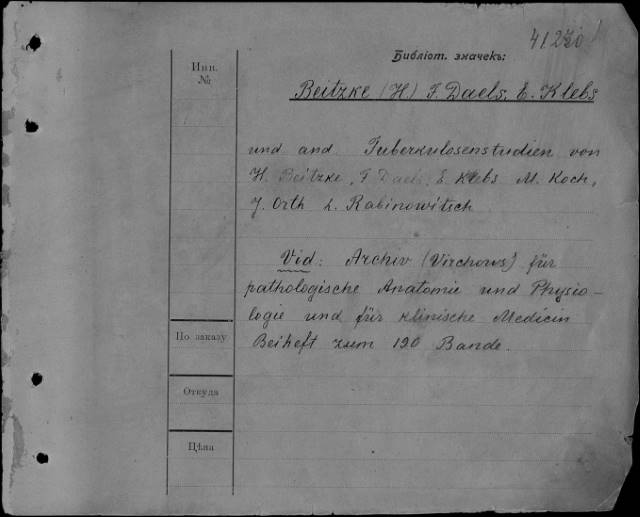 Библіот. значекъ:
Инв.
№
Beitzke (H) F. Daels, E. Klebs
und and. Tuberkulosenstudien von
H. Beitzke, F Daels, E Klebs M. Koch,
J. Orth L. Rabinowitsch
Vid: Archiv (Virchows) für
pathologische Anatomie und Physio-
logie und für klinische Medicin
Beiheft zum 190 Bande.
По заказу
Откуда
Цѣна